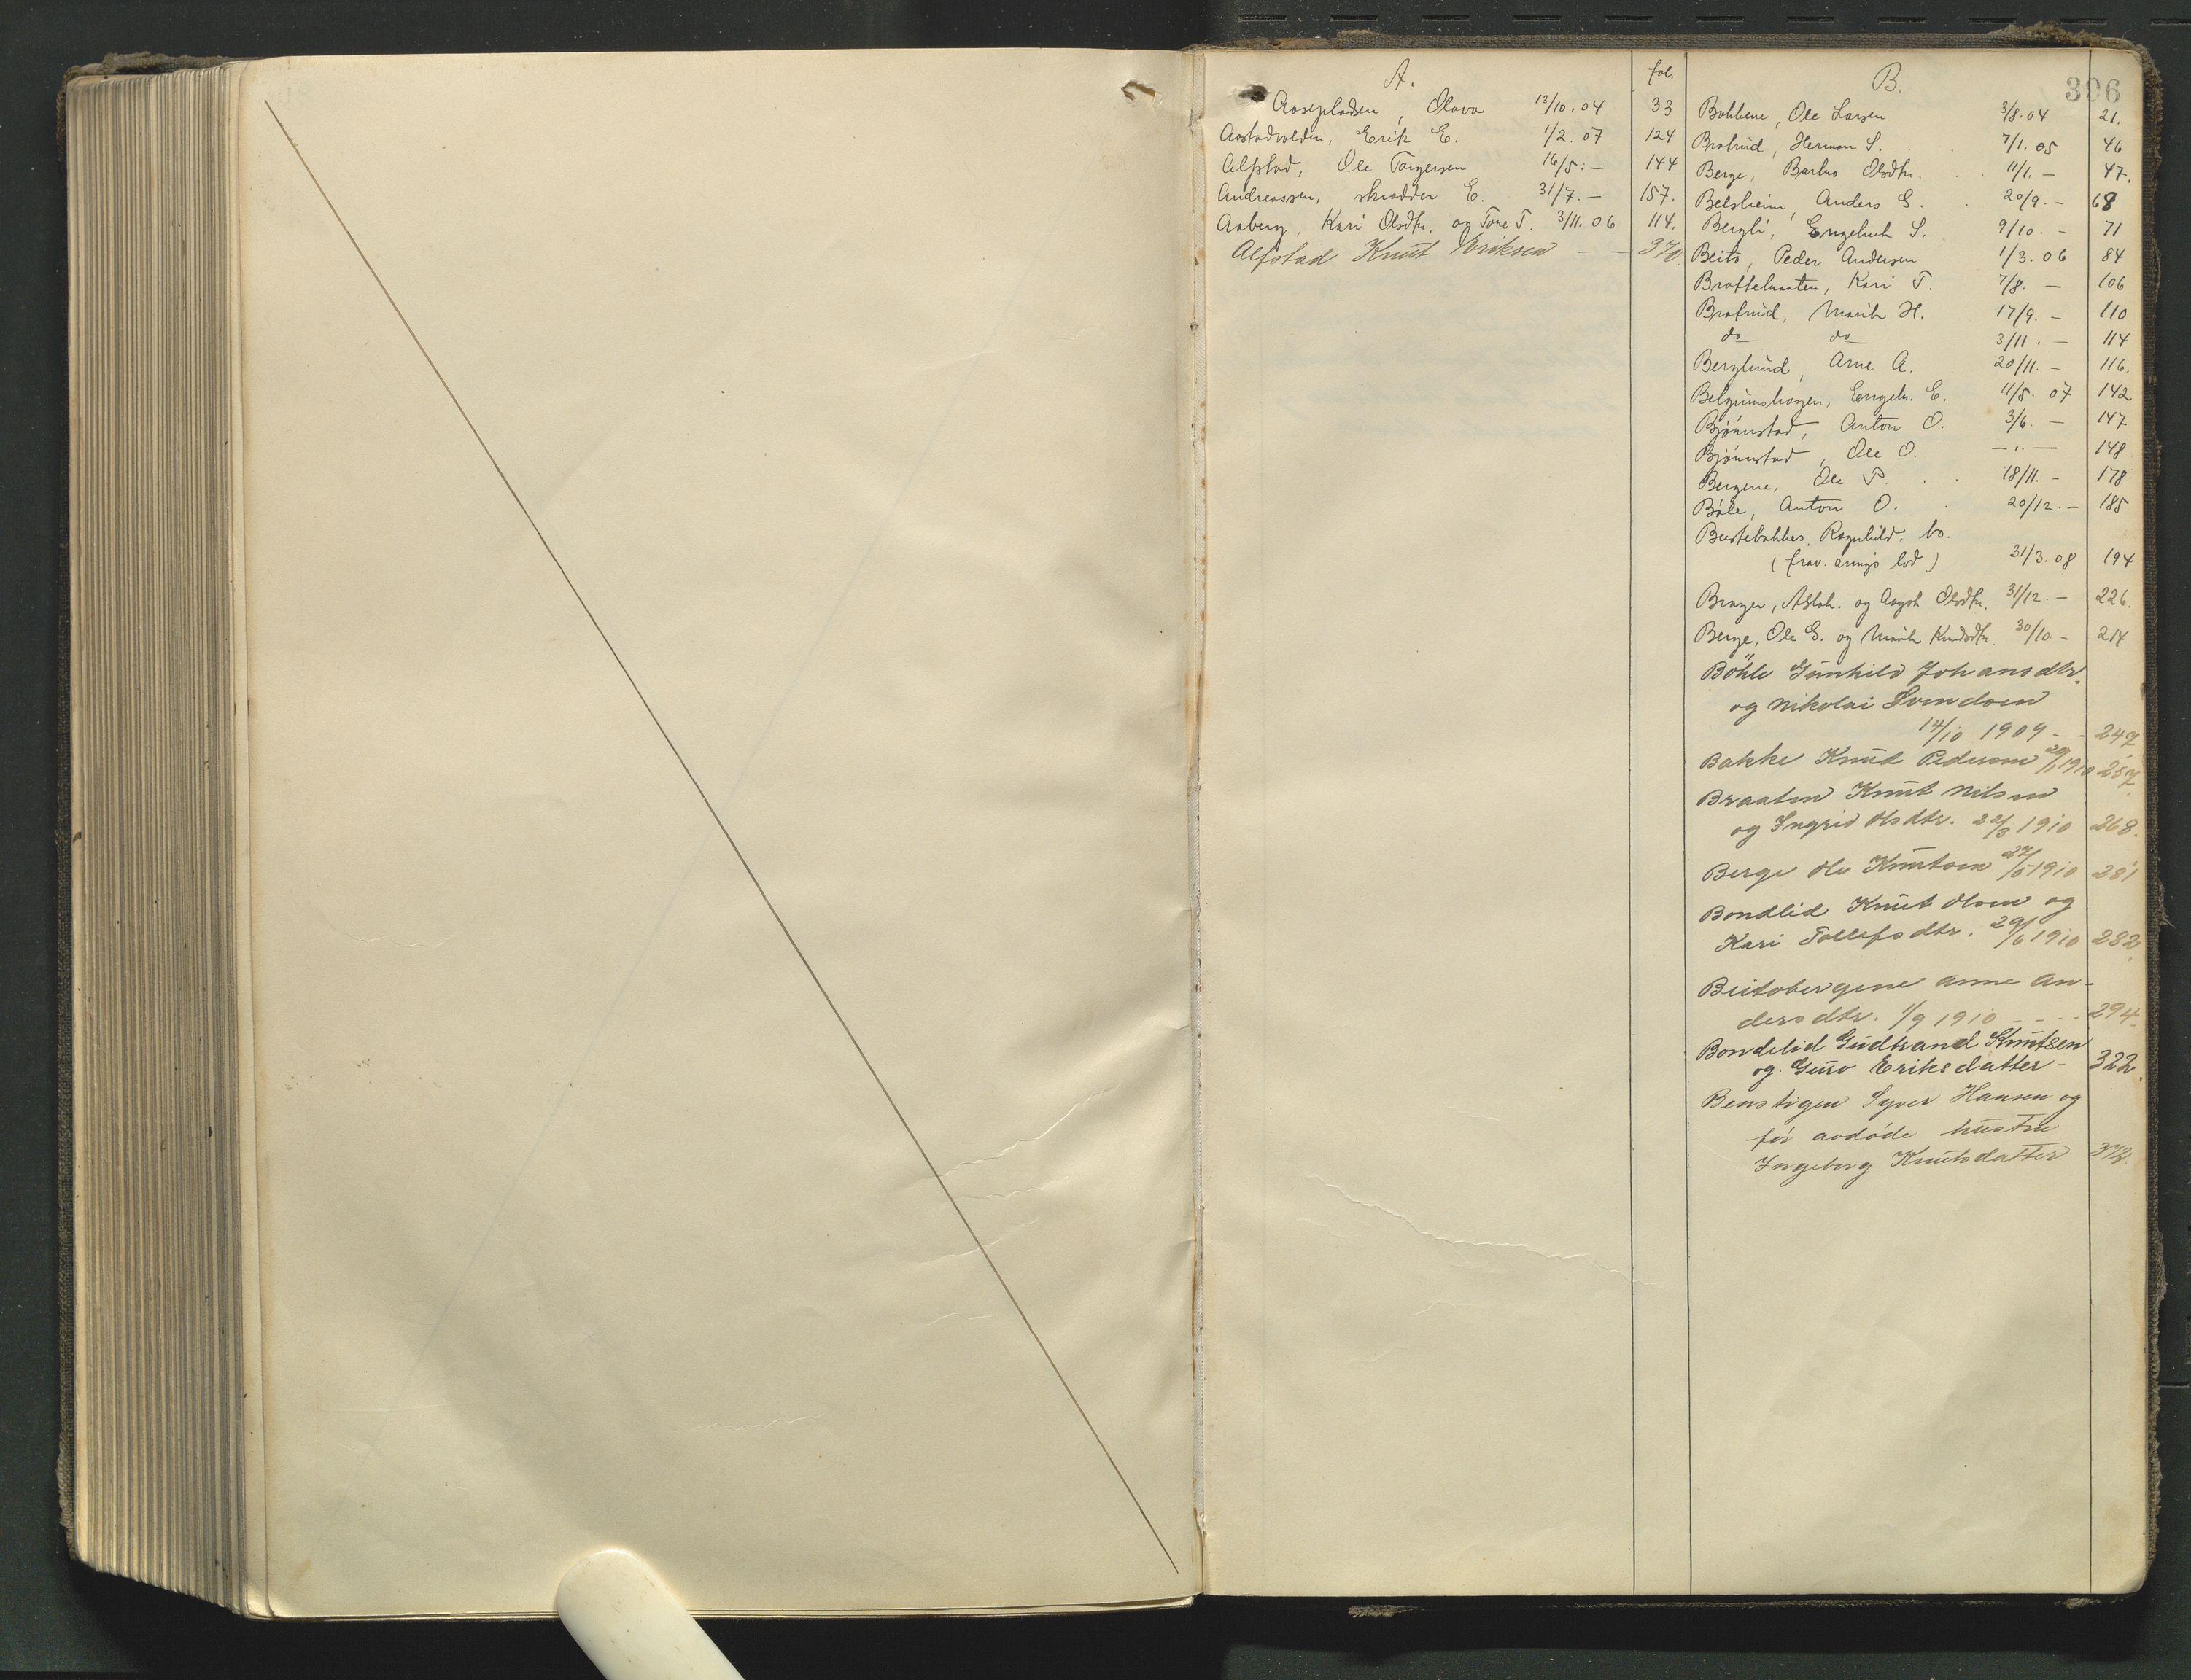 396
A. fol.
Aasepladsen, Olava 13/10.04 33
Aastadvolden, Erik E. 1/2.07 124
Alfstad, Ole Torgersen 16/5.- 144
Andreassen, skrædder E. 31/7.- 157.
Aaberg, Kari Olsdtr. og Tore T. 3/11.06 114.
Alfstad Knut Eriksen - - 370.
B.
Bakkene, Ole Larsen 3/8.04 21.
Brafrud, Herman S. 7/1.05 46
Berge, Barbro Olsdtr. 11/1.- 47.
Belsheim, Anders G. 20/9.- 68
Bergli, Engebret S. 9/10.- 71
Beito, Peder Andersen 1/3.06 84
Brattebraaten, Kari T. 7/8.- 106
Brafrud, Marit H. 17/9.- 110
do do 3/11.- 114
Berglund, Arne A. 20/11.- 116.
Belgumshagen, Engebr. E. 11/5.07 142
Bjørnstad, Anton O. 3/6.- 147
Bjørnstad, Ole O. -"- 148
Bergene, Ole P. 18/11.- 178
Bøle, Anton O. 20/12.- 185
Bustebakkes, Ragnhild. bo.
(frav. arvings lod) 31/3.08 194
Brager, Aslak. og Aagot Olsdtr. 31/12.- 226.
Berge, Ole G. og Marit Knudsdtr. 30/10- 214
Böhle Gunhild Johansdtr.
og Nikolai Svendsen
14/10 1909 - - 247
Bakke Knud Pedersen 29/1 1910 257.
Braaten Knut Nilsen
og Ingrid Olsdtr. 22/3 1910 268.
Berge Ole Knutsen 27/5 1910 281
Bondlid Knut Olsen og
Kari Tollefsdtr. 29/6 1910 282.
Beitobergene Anne An-
dersdtr. 1/9 1910 - - - - 294.
Bondelid Gudbrand Knutsen
og Guro Eriksdatter - 322.
Benstigen Syver Hansen og
før avdøde hustru
Ingeborg Knutsdatter 372.